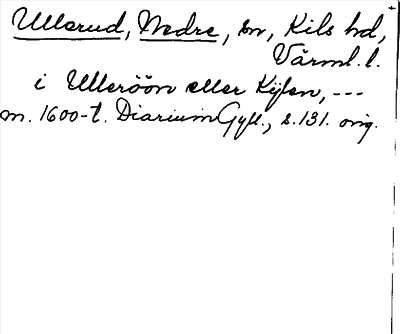 Ullerud, Nedre, sn, Kils hd,
Värml. l.
i Ulleröön eller Kijlen, ---
m. 1600-t. Diarium Gyll., s. 131. orig.